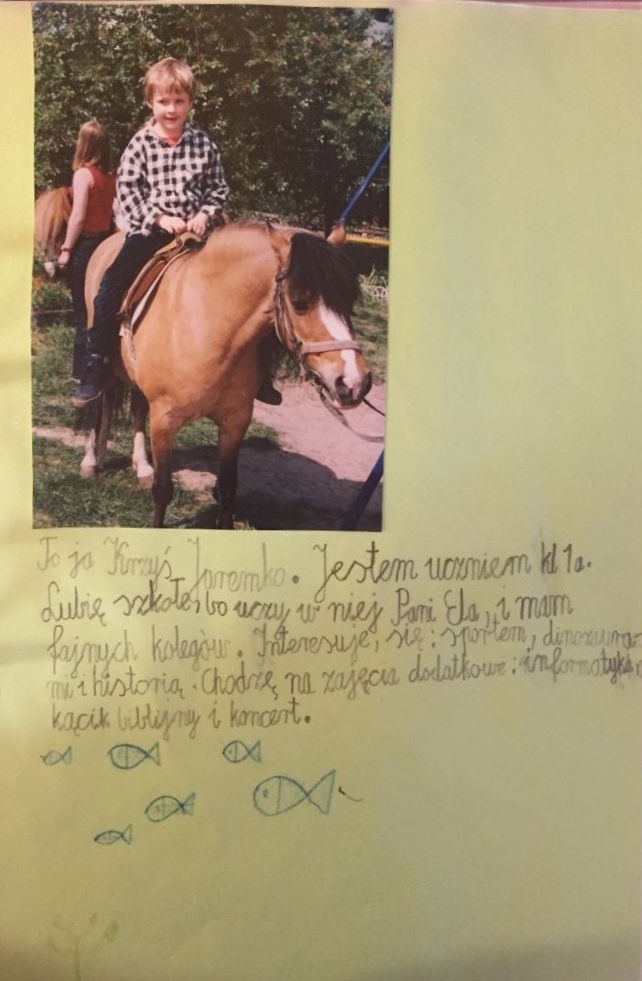 To ja Krzyś Jaremko. Jestem uczniem kl 1a.
Lubię szkołę, bo uczy w niej Pani Ela, i mam
fajnych kolegów. Interesuje, się: sportem, dinozaura-
mi i historią. Chodzę na zajęcia dodatkowe: informatykę,
kącik biblijny i koncert.